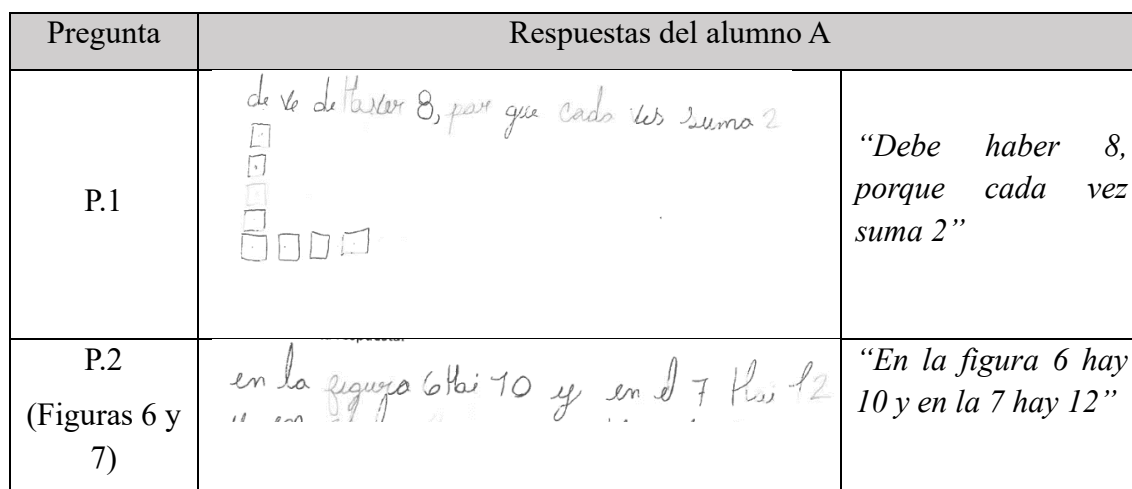 Pregunta
Respuestas del alumno A
P.1
de ve de Haver 8, por que cada ves suma 2
“Debe haber 8,
porque cada vez
suma 2”
P.2
(Figuras 6 y
7)
en la figura 6 Hai 10 y en el 7 Hai 12
“En la figura 6 hay
10 y en la 7 hay 12”